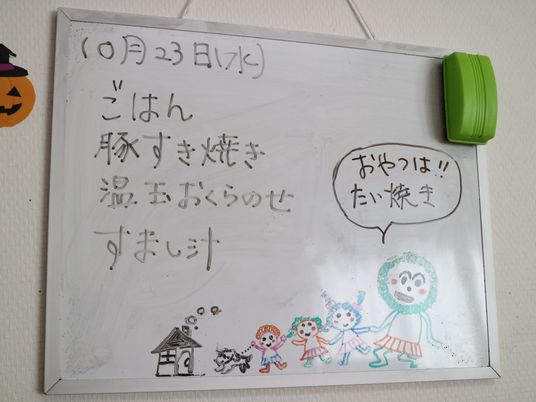 10月23日(水)
ごはん
豚すき焼き
温玉おくらのせ
すまし汁
おやつは!!
たい焼き